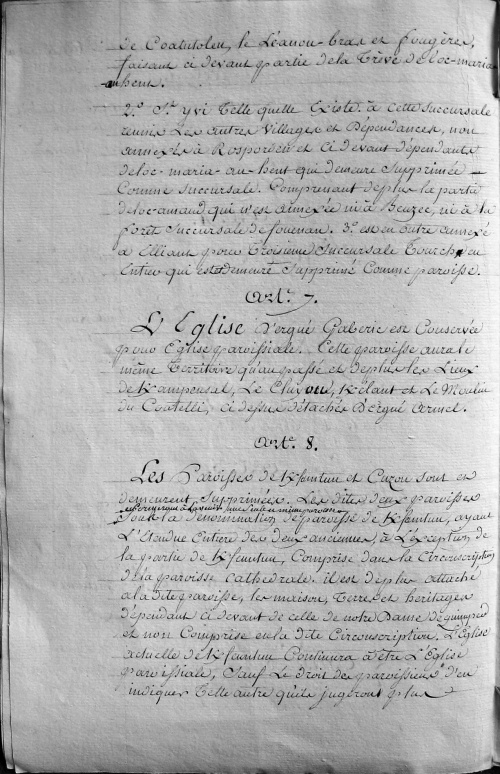 de Coatutolen, le Léanou-bras et fougères,
faisant ci devant partie de la Trève de loc-maria
anhent.
2.º St. yvi Telle quelle Existe. à Cette Succursale
reunis Les autres Villages et Dépendances, non
annexés à Rosporden et ci devant dépendants
de loc-maria-an-hent qui demeure Supprimée
Comme Succursale. Comprenant deplus la partie
de loc-amand qui n'est annexée ni à Beuzec, ni à la
forêt Succursale de fouenan. 3.º est en outre annexé
à Elliant pour Troisieme Succursale Tourch en
Entier qui est et demeure Supprimé Comme paroisse.
Art.e 7.
L'Eglise d'ergué Gaberic est Conservée
pour Eglise paroissiale. Cette paroisse aura le
même Territoire qu'au passé et deplus les Lieux
de Kampensal, Le Cluyou, Kélant et Le Moulin
du Coatelli, ci dessus détachés d'Ergué armel.
Art.e 8.
Les Paroisses de Kfeunteun et Cuzou sont et
demeurent Supprimées. Les dites deux paroisses
en formeront à l'avenir une seule et même paroisse
Sous la dénomination de paroisse de Kfeunteun, ayant
L'Etendue Entiere des deux anciennes, à L'exception de
la partie de Kfeunteun, Comprise dans la Circonscription
de la paroisse Cathedrale. il est deplus attaché
a la dite paroisse, les maison, Terres et heritages
dépendant ci devant de celle de notre Dame de quimper
et non Comprise en la dite Circonscription. L'Eglise
actuelle de Kfeunteun Continuera à être L'Eglise
paroissiale, Sauf Le droit des paroissiens d'en
indiquer Telle autre qu'ils jugeront plus